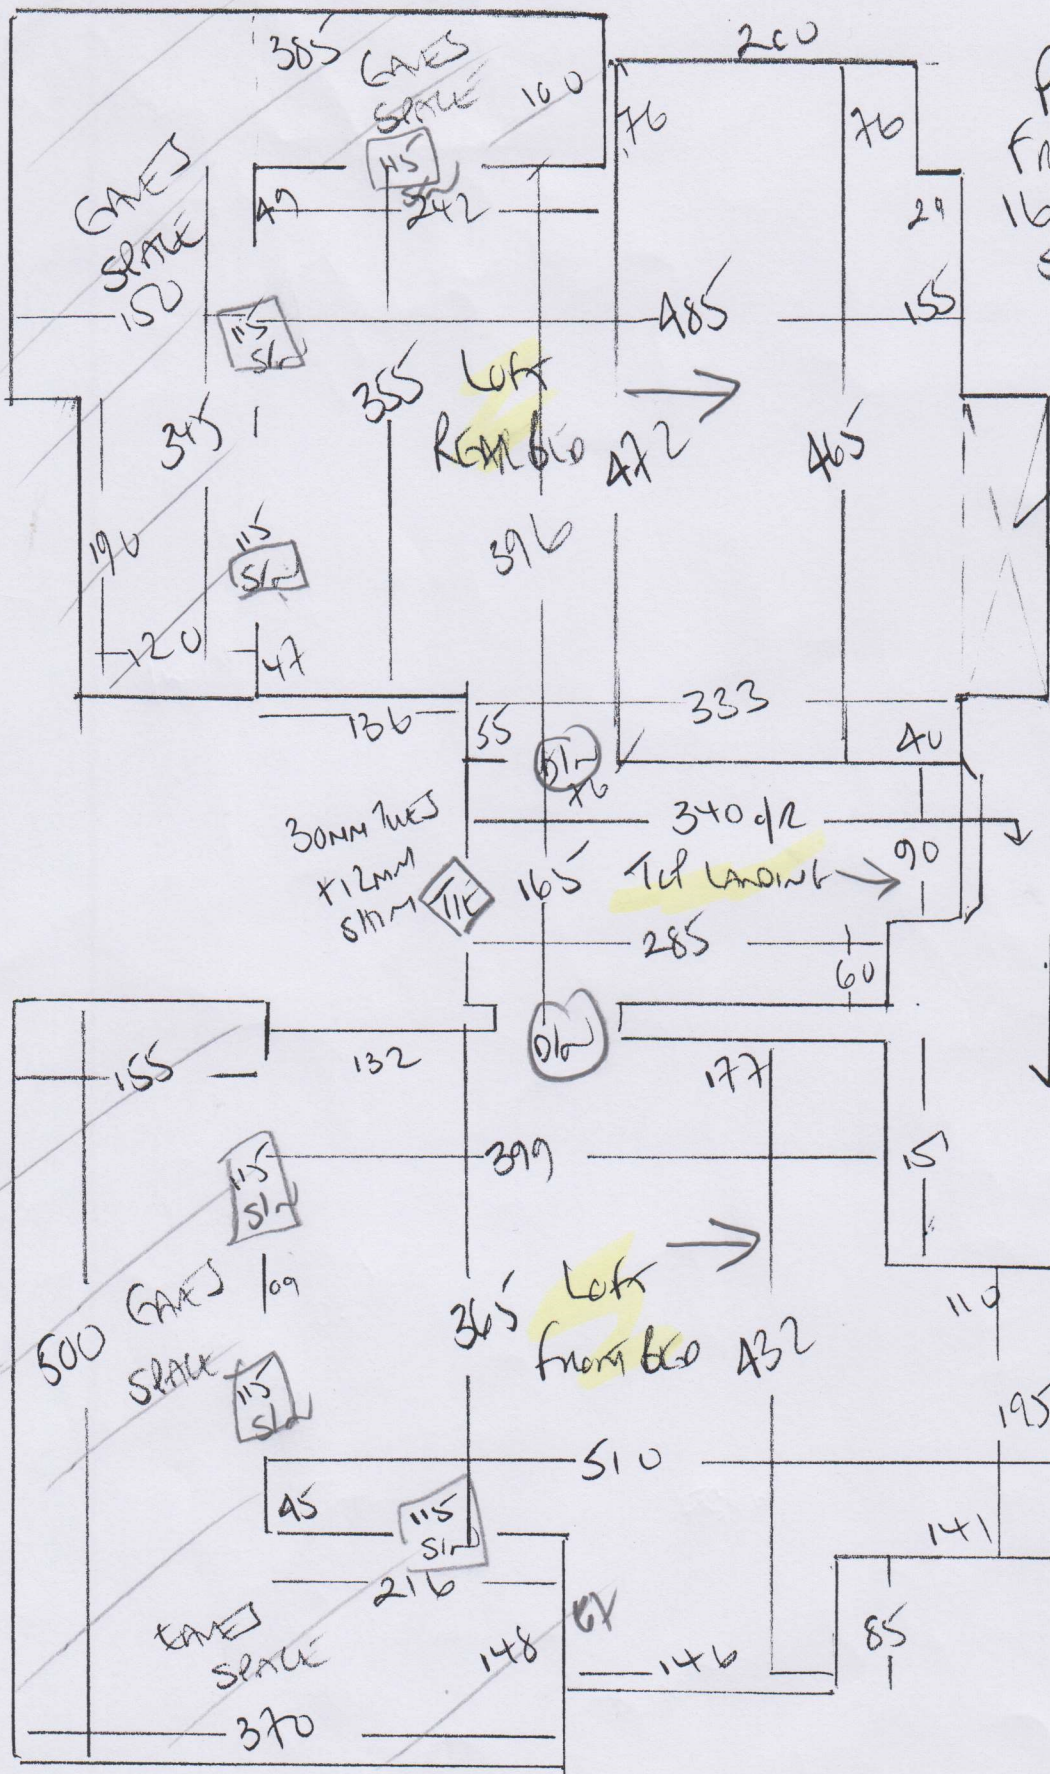 385
EAVES
SPACE
100
200
76
76
EAVES
SPACE
150
115
S/W
49
242
29
115
S/W
485
155
345
355
LOFT
REAR BED
472
465
115
S/W
190
396
120
47
136
55
333
40
D/W
76
30MM TILES
+12MM
SHIM
T/E
340 O/R
165
TOP LANDING
90
285
60
155
132
D/W
177
115
S/W
399
151
109
EAVES
SPACE
500
365
LOFT
FRONT BED
432
110
115
S/W
195
510
45
115
S/W
141
216
67
85
EAVES
SPACE
148
146
370